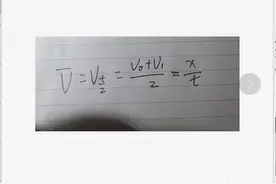 V̄ = V_{t/2} = (V₀+V₁)/2 = x/t